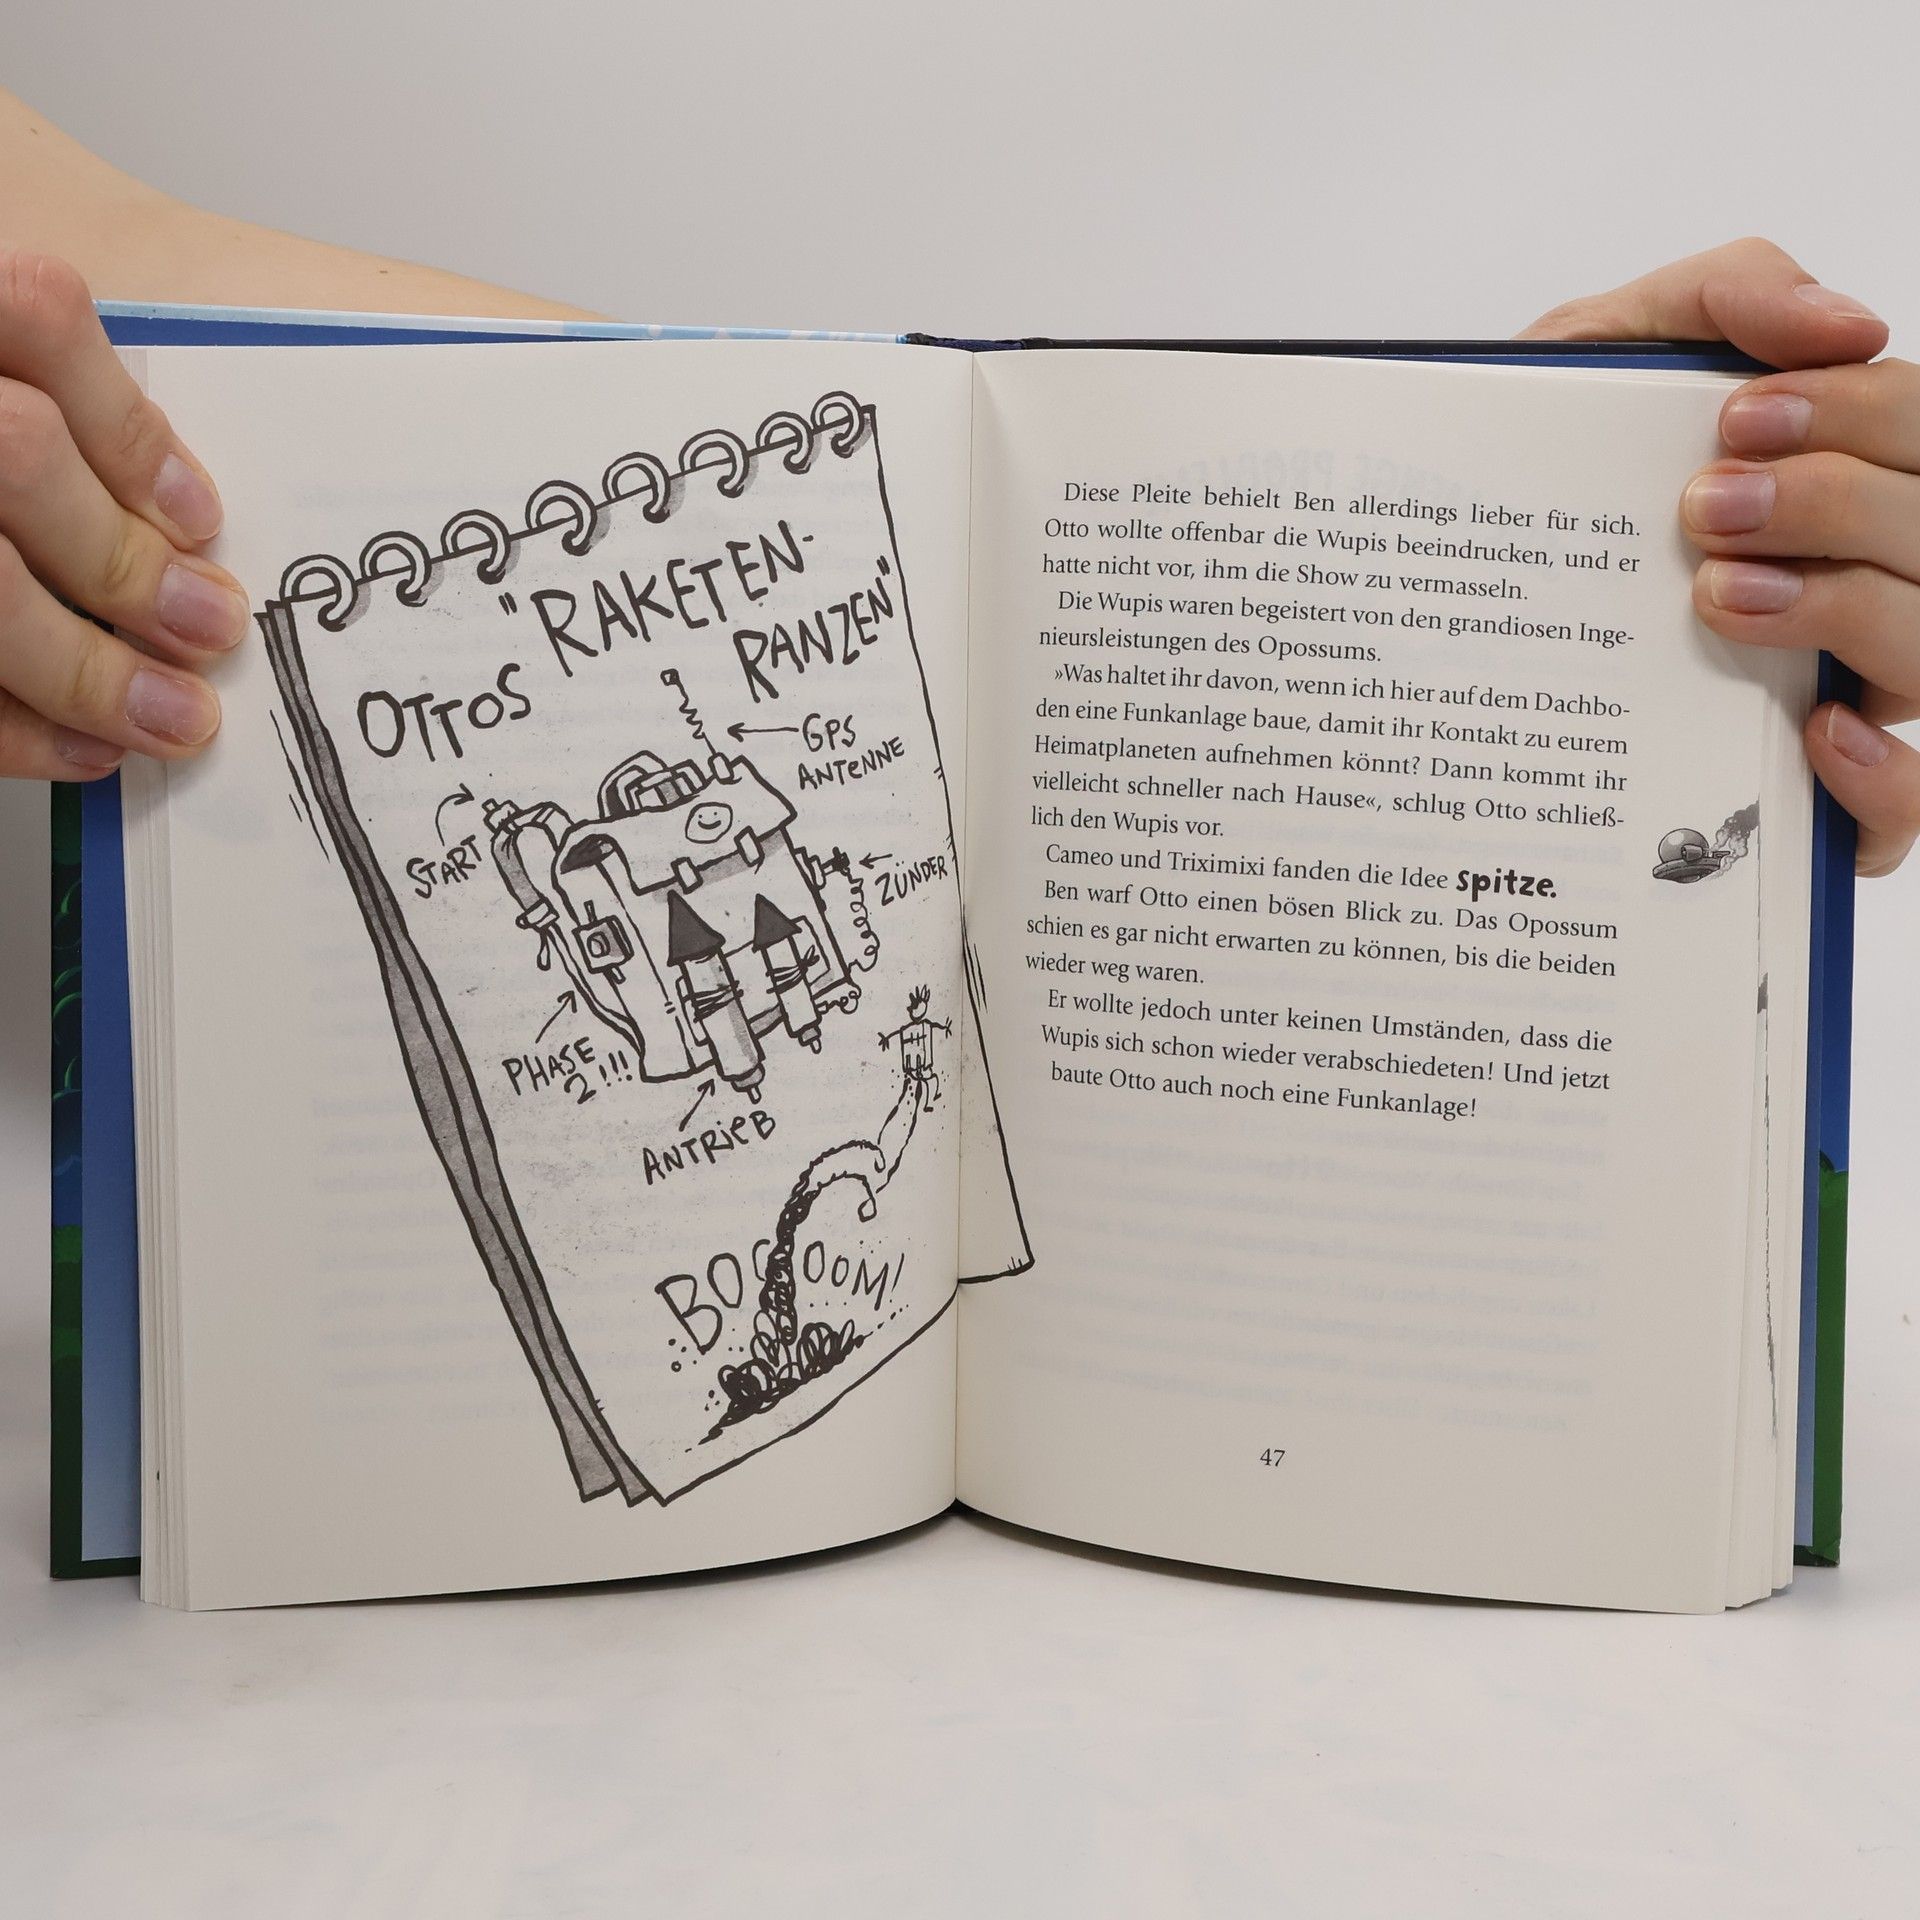 OTTOS "RAKETEN-
RANZEN"
GPS
ANTENNE
START
ZÜNDER
PHASE
2!!!
ANTRIEB
Diese Pleite behielt Ben allerdings lieber für sich.
Otto wollte offenbar die Wupis beeindrucken, und er
hatte nicht vor, ihm die Show zu vermasseln.
Die Wupis waren begeistert von den grandiosen Inge-
nieursleistungen des Opossums.
»Was haltet ihr davon, wenn ich hier auf dem Dachbo-
den eine Funkanlage baue, damit ihr Kontakt zu eurem
Heimatplaneten aufnehmen könnt? Dann kommt ihr
vielleicht schneller nach Hause«, schlug Otto schließ-
lich den Wupis vor.
Cameo und Triximixi fanden die Idee spitze.
Ben warf Otto einen bösen Blick zu. Das Opossum
schien es gar nicht erwarten zu können, bis die beiden
wieder weg waren.
Er wollte jedoch unter keinen Umständen, dass die
Wupis sich schon wieder verabschiedeten! Und jetzt
baute Otto auch noch eine Funkanlage!
47